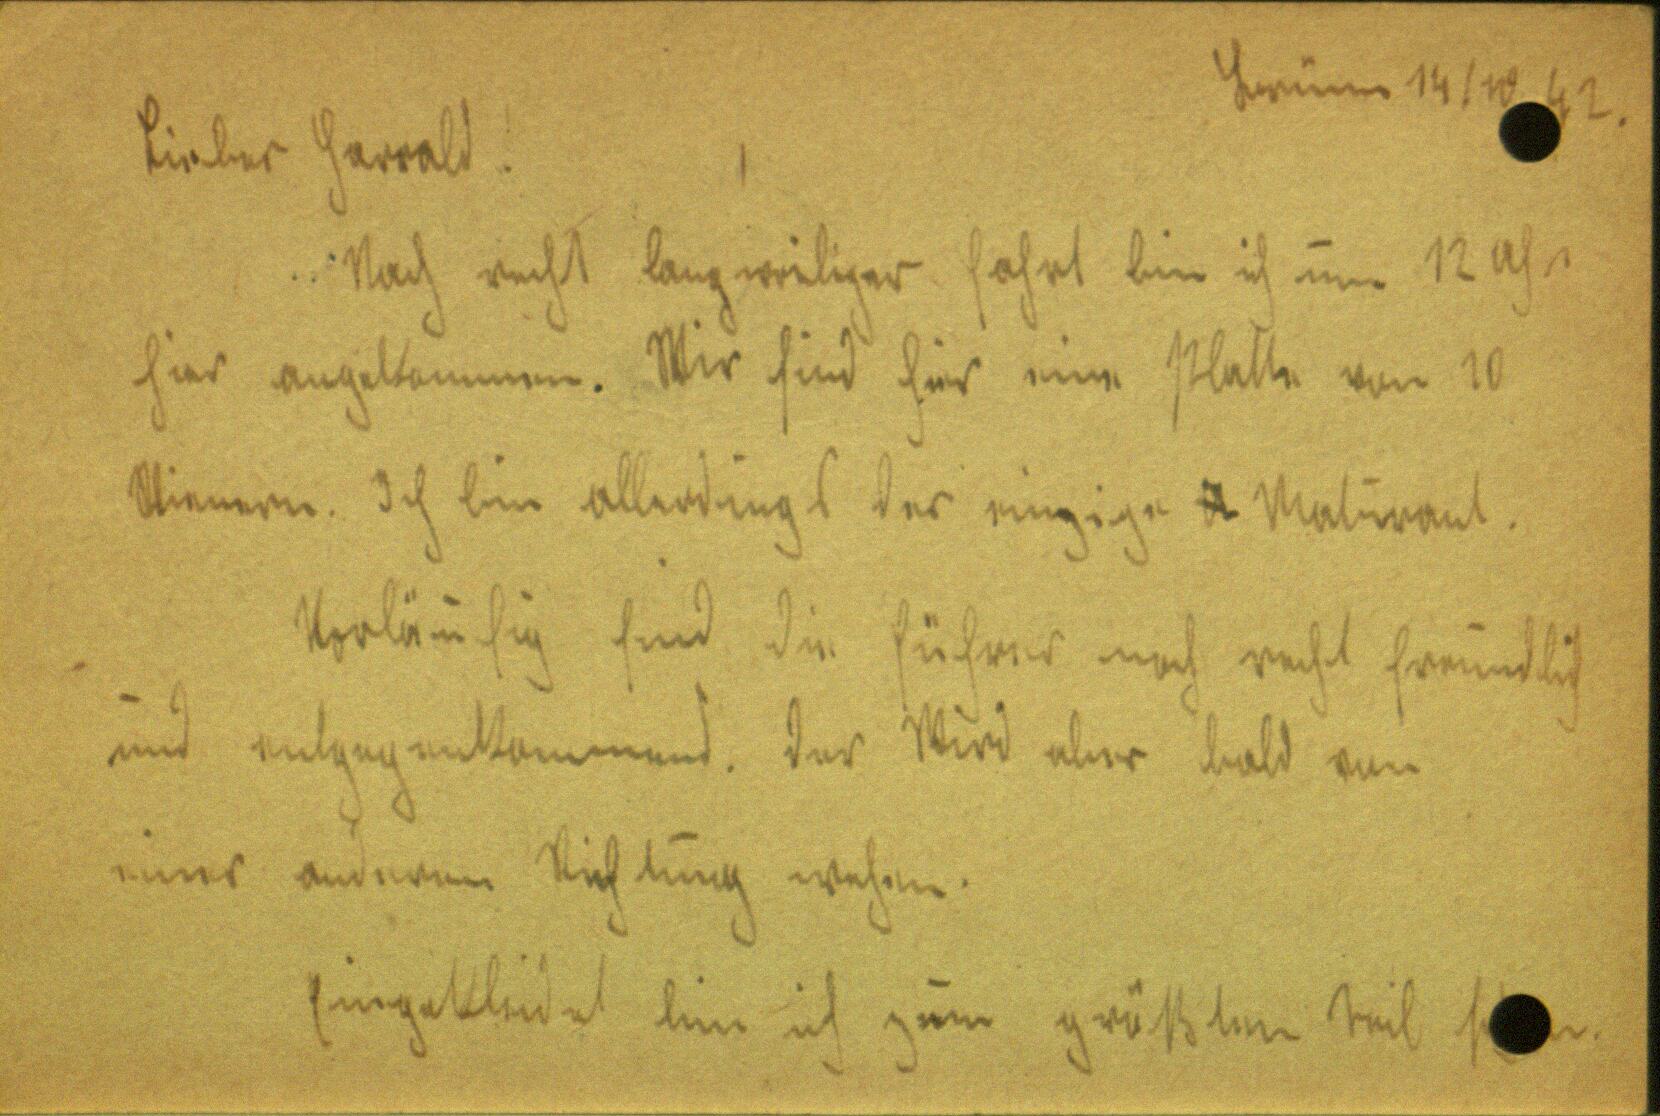 Brünn 14/10 42.
Lieber Harrald!
Nach recht langweiliger Fahrt bin ich um 12 Uhr
hier angekommen. Wir sind hier eine Platte von 10
Wienern. Ich bin allerdings der einzige Maturant.
Vorläufig sind die Führer noch recht freundlich
und entgegenkommend. Der Wird aber bald von
einer anderen Richtung wehen.
Eingekleidet bin ich zum größten Teil